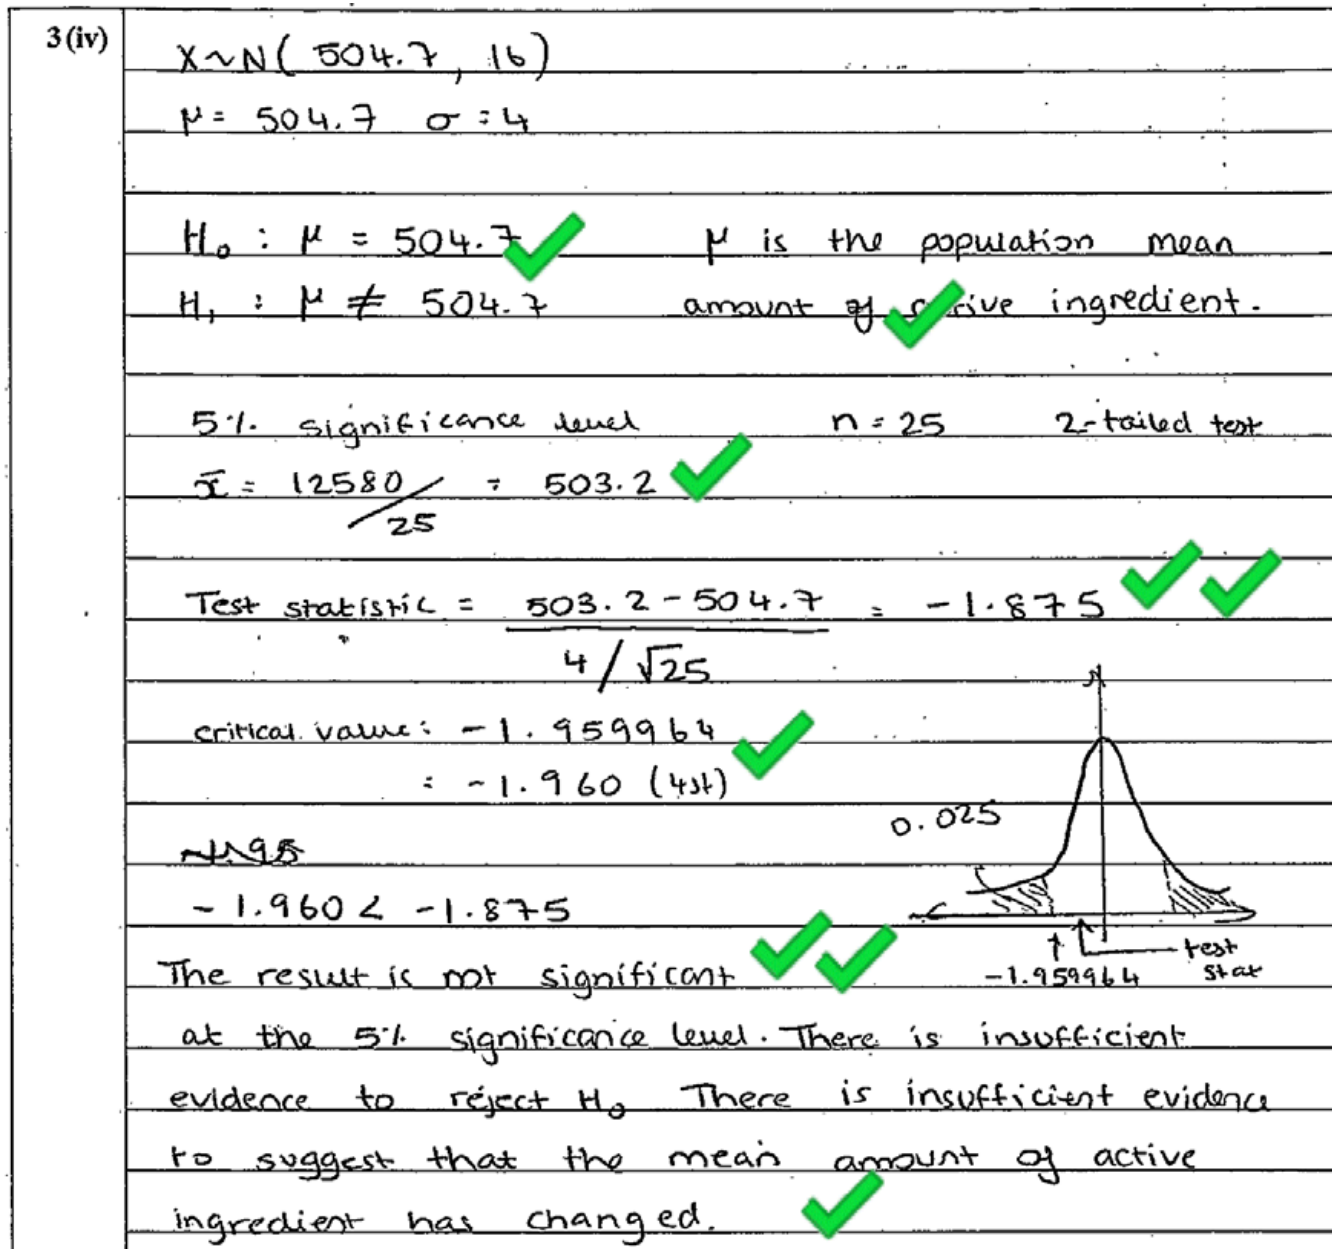 3(iv)
X~N( 504.7, 16)
μ= 504.7 σ=4
H₀ : μ = 504.7 μ is the population mean
H₁ : μ ≠ 504.7 amount of active ingredient.
5% significance level n = 25 2-tailed test
x̄ = 12580/25 = 503.2
Test statistic = 503.2 - 504.7 = -1.875
4/√25
critical value: -1.959964
= -1.960 (4sf)
0.025
-1.960 < -1.875
test
stat
-1.959964
The result is not significant
at the 5% significance level. There is insufficient
evidence to reject H₀ There is insufficient evidence
to suggest that the mean amount of active
ingredient has changed.